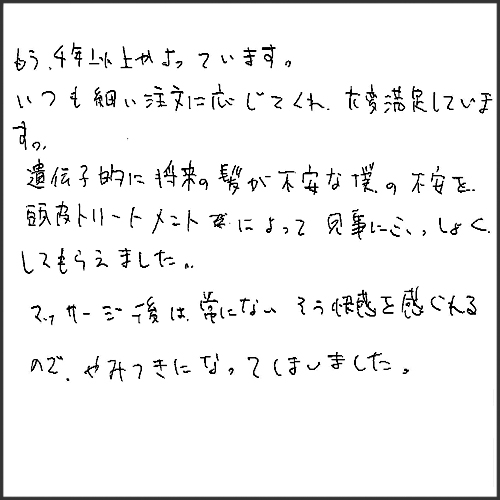 もう、4年以上かよっています。
いつも細い注文に応じてくれ、大変満足していま
す。
遺伝子的に将来の髪が不安な僕の不安を、
頭皮トリートメントによって見事にふっしょく
してもらえました。
マッサージ後は、常にない そう快感を感じれる
ので、やみつきになってしまいました。